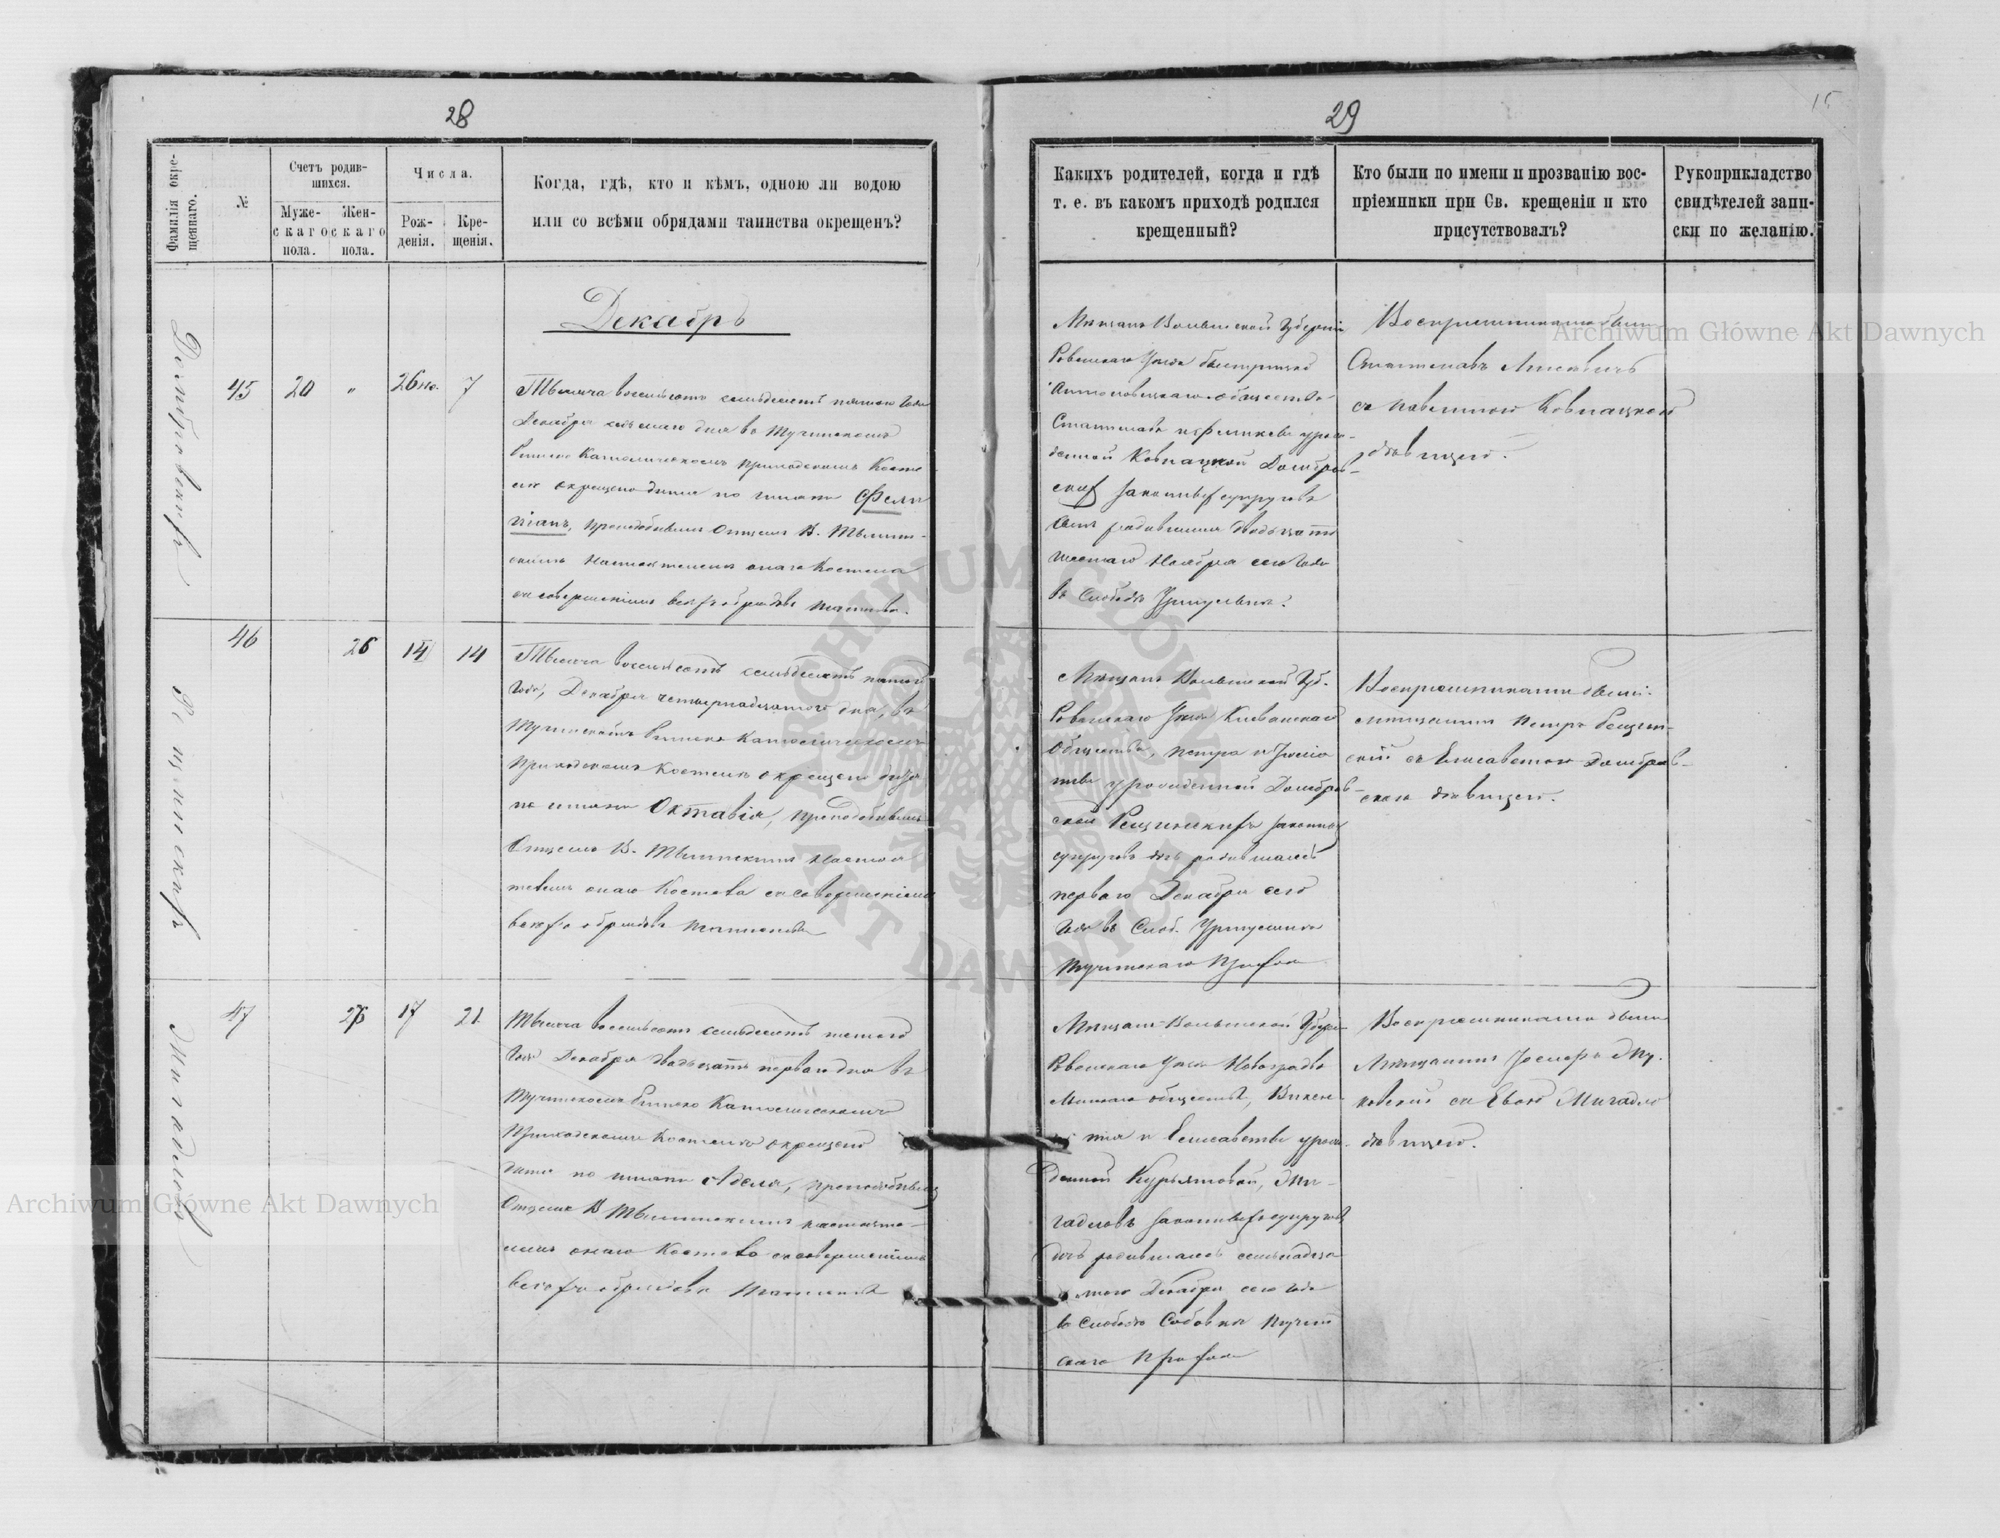 28
Фамилія окре-
щеннаго.
№
Счетъ родив-
шихся.
Муже-
скаго
пола.
Жен-
скаго
пола.
Числа.
Рож-
денія.
Кре-
щенія.
Когда, гдѣ, кто и кѣмъ, одною ли водою
или со всѣми обрядами таинства окрещенъ?
Декабрь
Домбровскій
45
20
"
26 но.
7
Тысяча восемьсотъ семьдесятъ пятого Года
Декабря седьмаго дня въ Тучинскомъ
Римско Католическомъ приходскомъ Косте-
лѣ окрещено дитя по имени Фели-
ціанъ, преподобнымъ Отцемъ В.
Настоятелемъ онаго Костела
со совершеніемъ всѣхъ обрядовъ таинства.
46
25
14
14
Тысяча восемьсотъ семьдесятъ пятого
Года, Декабря четырнадцатого дня, въ
Тучинскомъ Римско Католическомъ
приходскомъ Костелѣ окрещено дитя
по имени Октавія, преподобнымъ
Отцемъ В. Настоя
телемъ онаго Костела со совершеніемъ
всѣхъ обрядовъ таинства
47
26
17
21
Тысяча восемьсотъ семьдесятъ пятого
Года Декабря двадцать перваго дня въ
Тучинскомъ Римско Католическомъ
Приходскомъ Костелѣ окрещено
дитя по имени Аделя, преподобнымъ
Отцемъ В. настояте-
лемъ онаго Костела со совершеніемъ
всѣхъ обрядовъ таинства
29
15
Какихъ родителей, когда и гдѣ
т. е. въ какомъ приходѣ родился
крещенный?
Кто были по имени и прозванію вос-
пріемники при Св. крещеніи и кто
присутствовалъ?
Рукоприкладство
свидѣтелей запи-
ски по желанію.
Мѣщанъ Волынской Губерніи
Ровенскаго Уѣзда
общества
Станислава и урож-
денной Домбров-
скихъ законныхъ супруговъ
сынъ родившійся двадцать
шестаго Ноября сего Года
въ Слободѣ
Воспріемниками были
Станиславъ
съ
дѣвицею.
Мѣщанъ Волынской Губ.
Ровенскаго Уѣзда Клеванскаго
Общества, Петра и
урожденной Домбров-
ской законныхъ
супруговъ дочь родившаяся
перваго Декабря сего
Года въ Слоб.
Тучинскаго Прихода
Воспріемниками были
мѣщанинъ Петръ
скій съ Елисаветою Домбров-
скою дѣвицею.
Мѣщанъ Волынской Губерніи
Ровенскаго Уѣзда
общества, Викен-
тія и Елисаветы урож-
денной
законныхъ супруговъ
дочь родившаяся семьнадца
того Декабря сего Года
въ Слободѣ Тучин
скаго Прихода
Воспріемниками были
Мѣщанинъ Іосифъ
съ Евою
дѣвицею.
Archiwum Główne Akt Dawnych
Archiwum Główne Akt Dawnych
ARCHIWUM GŁÓWNE AKT DAWNYCH